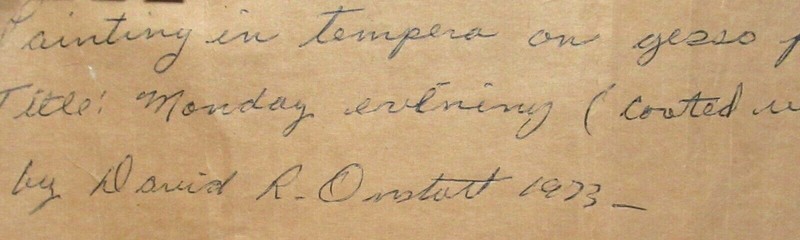 Painting in tempera on gesso p
Title: Monday evening (coated w
by David R. Onstott 1973_